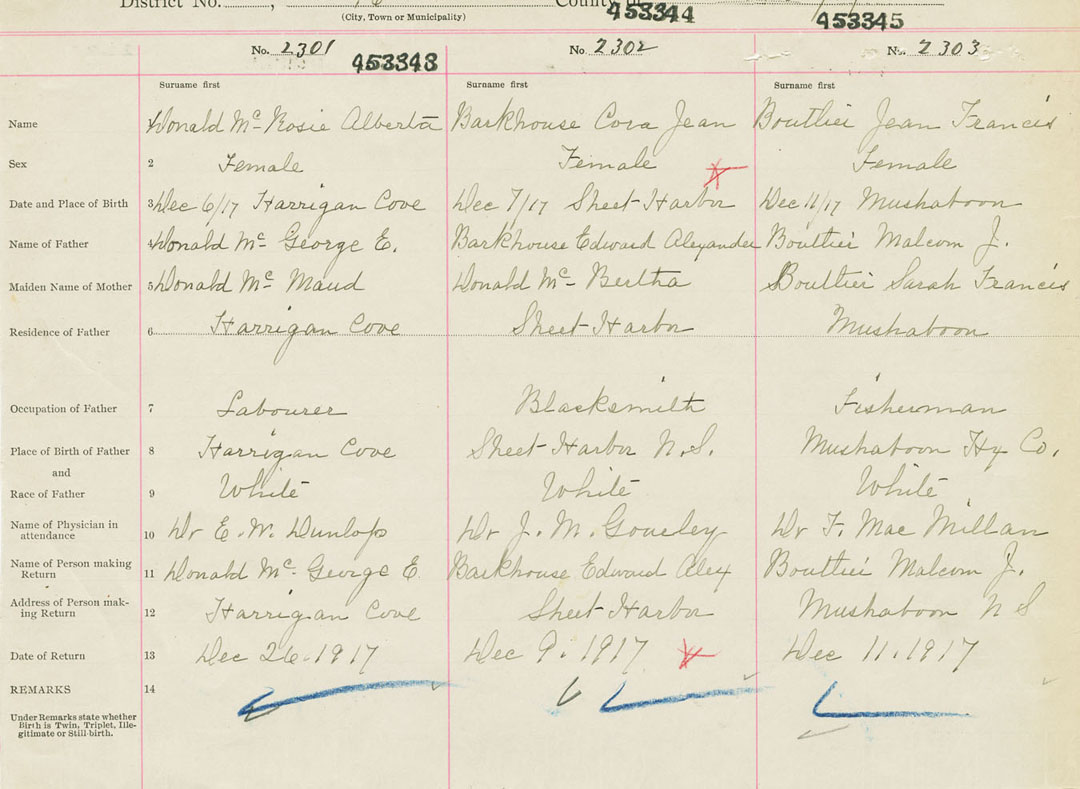 District No. County
(City, Town or Municipality)
453344 453345
No. 2301 No. 2302 No. 2303
453343
Surname first Surname first Surname first
Name 1 Donald Mc Rosie Alberta Barkhouse Cora Jean Boutlier Jean Francis
Sex 2 Female Female Female
Date and Place of Birth 3 Dec 6/17 Harrigan Cove Dec 7/17 Sheet Harbor Dec 11/17 Mushaboon
Name of Father 4 Donald Mc George E. Barkhouse Edward Alexander Boutlier Malcom J.
Maiden Name of Mother 5 Donald Mc Maud Donald Mc Bertha Boutlier Sarah Francis
Residence of Father 6 Harrigan Cove Sheet Harbor Mushaboon
Occupation of Father 7 Labourer Blacksmith Fisherman
Place of Birth of Father 8 Harrigan Cove Sheet Harbor N.S. Mushaboon Hx Co.
and
Race of Father 9 White White White
Name of Physician in
attendance 10 Dr E. W. Dunlop Dr J. M. Dr F. Mac Millan
Name of Person making
Return 11 Donald Mc George E Barkhouse Edward Alex Boutlier Malcom J.
Address of Person mak-
ing Return 12 Harrigan Cove Sheet Harbor Mushaboon N S
Date of Return 13 Dec 26.1917 Dec 9.1917 Dec 11.1917
REMARKS 14
Under Remarks state whether
Birth is Twin, Triplet, Ille-
gitimate or Still-birth.